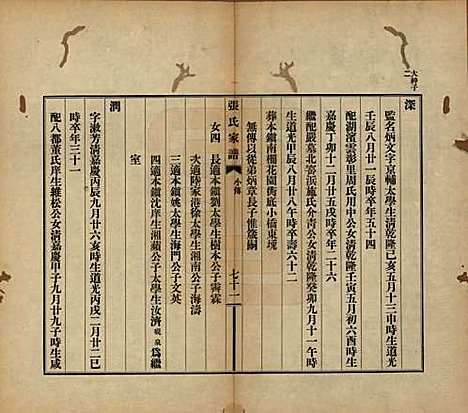 大紳子
二
深
監名炳文字京輔太學生清乾隆己亥五月十二申時生道光
壬辰八月廿一辰時卒年五十四
配湖濱雲彰里周氏用中公女清乾隆壬寅五月初六酉時生
嘉慶二十年乙亥十二月廿五戌時卒年三十四
繼配嚴墓北窑浜施氏分青公女清乾隆癸卯九月十一午時
生道光甲辰八月廿八午時卒壽六十二
葬本鎮南柵花園衖底小橋東堍
無傳以從弟炳章長子惟懲嗣
張氏家譜
小傳
七十二
女四
長適本鎮劉太學生樹本公子霽霖
次適陸家港徐太學生湘南公子海濤
三適本鎮姚太學生海門公子文英
四適本鎮沈庠生湘蘋公子太學生汝濟 爲繼
室
潤
字淑芳清嘉慶丙辰九月廿六亥時生道光丙戌二月廿二巳
時卒年三十一
配八都董氏庠生維松公女清嘉慶甲子九月廿九子時生咸